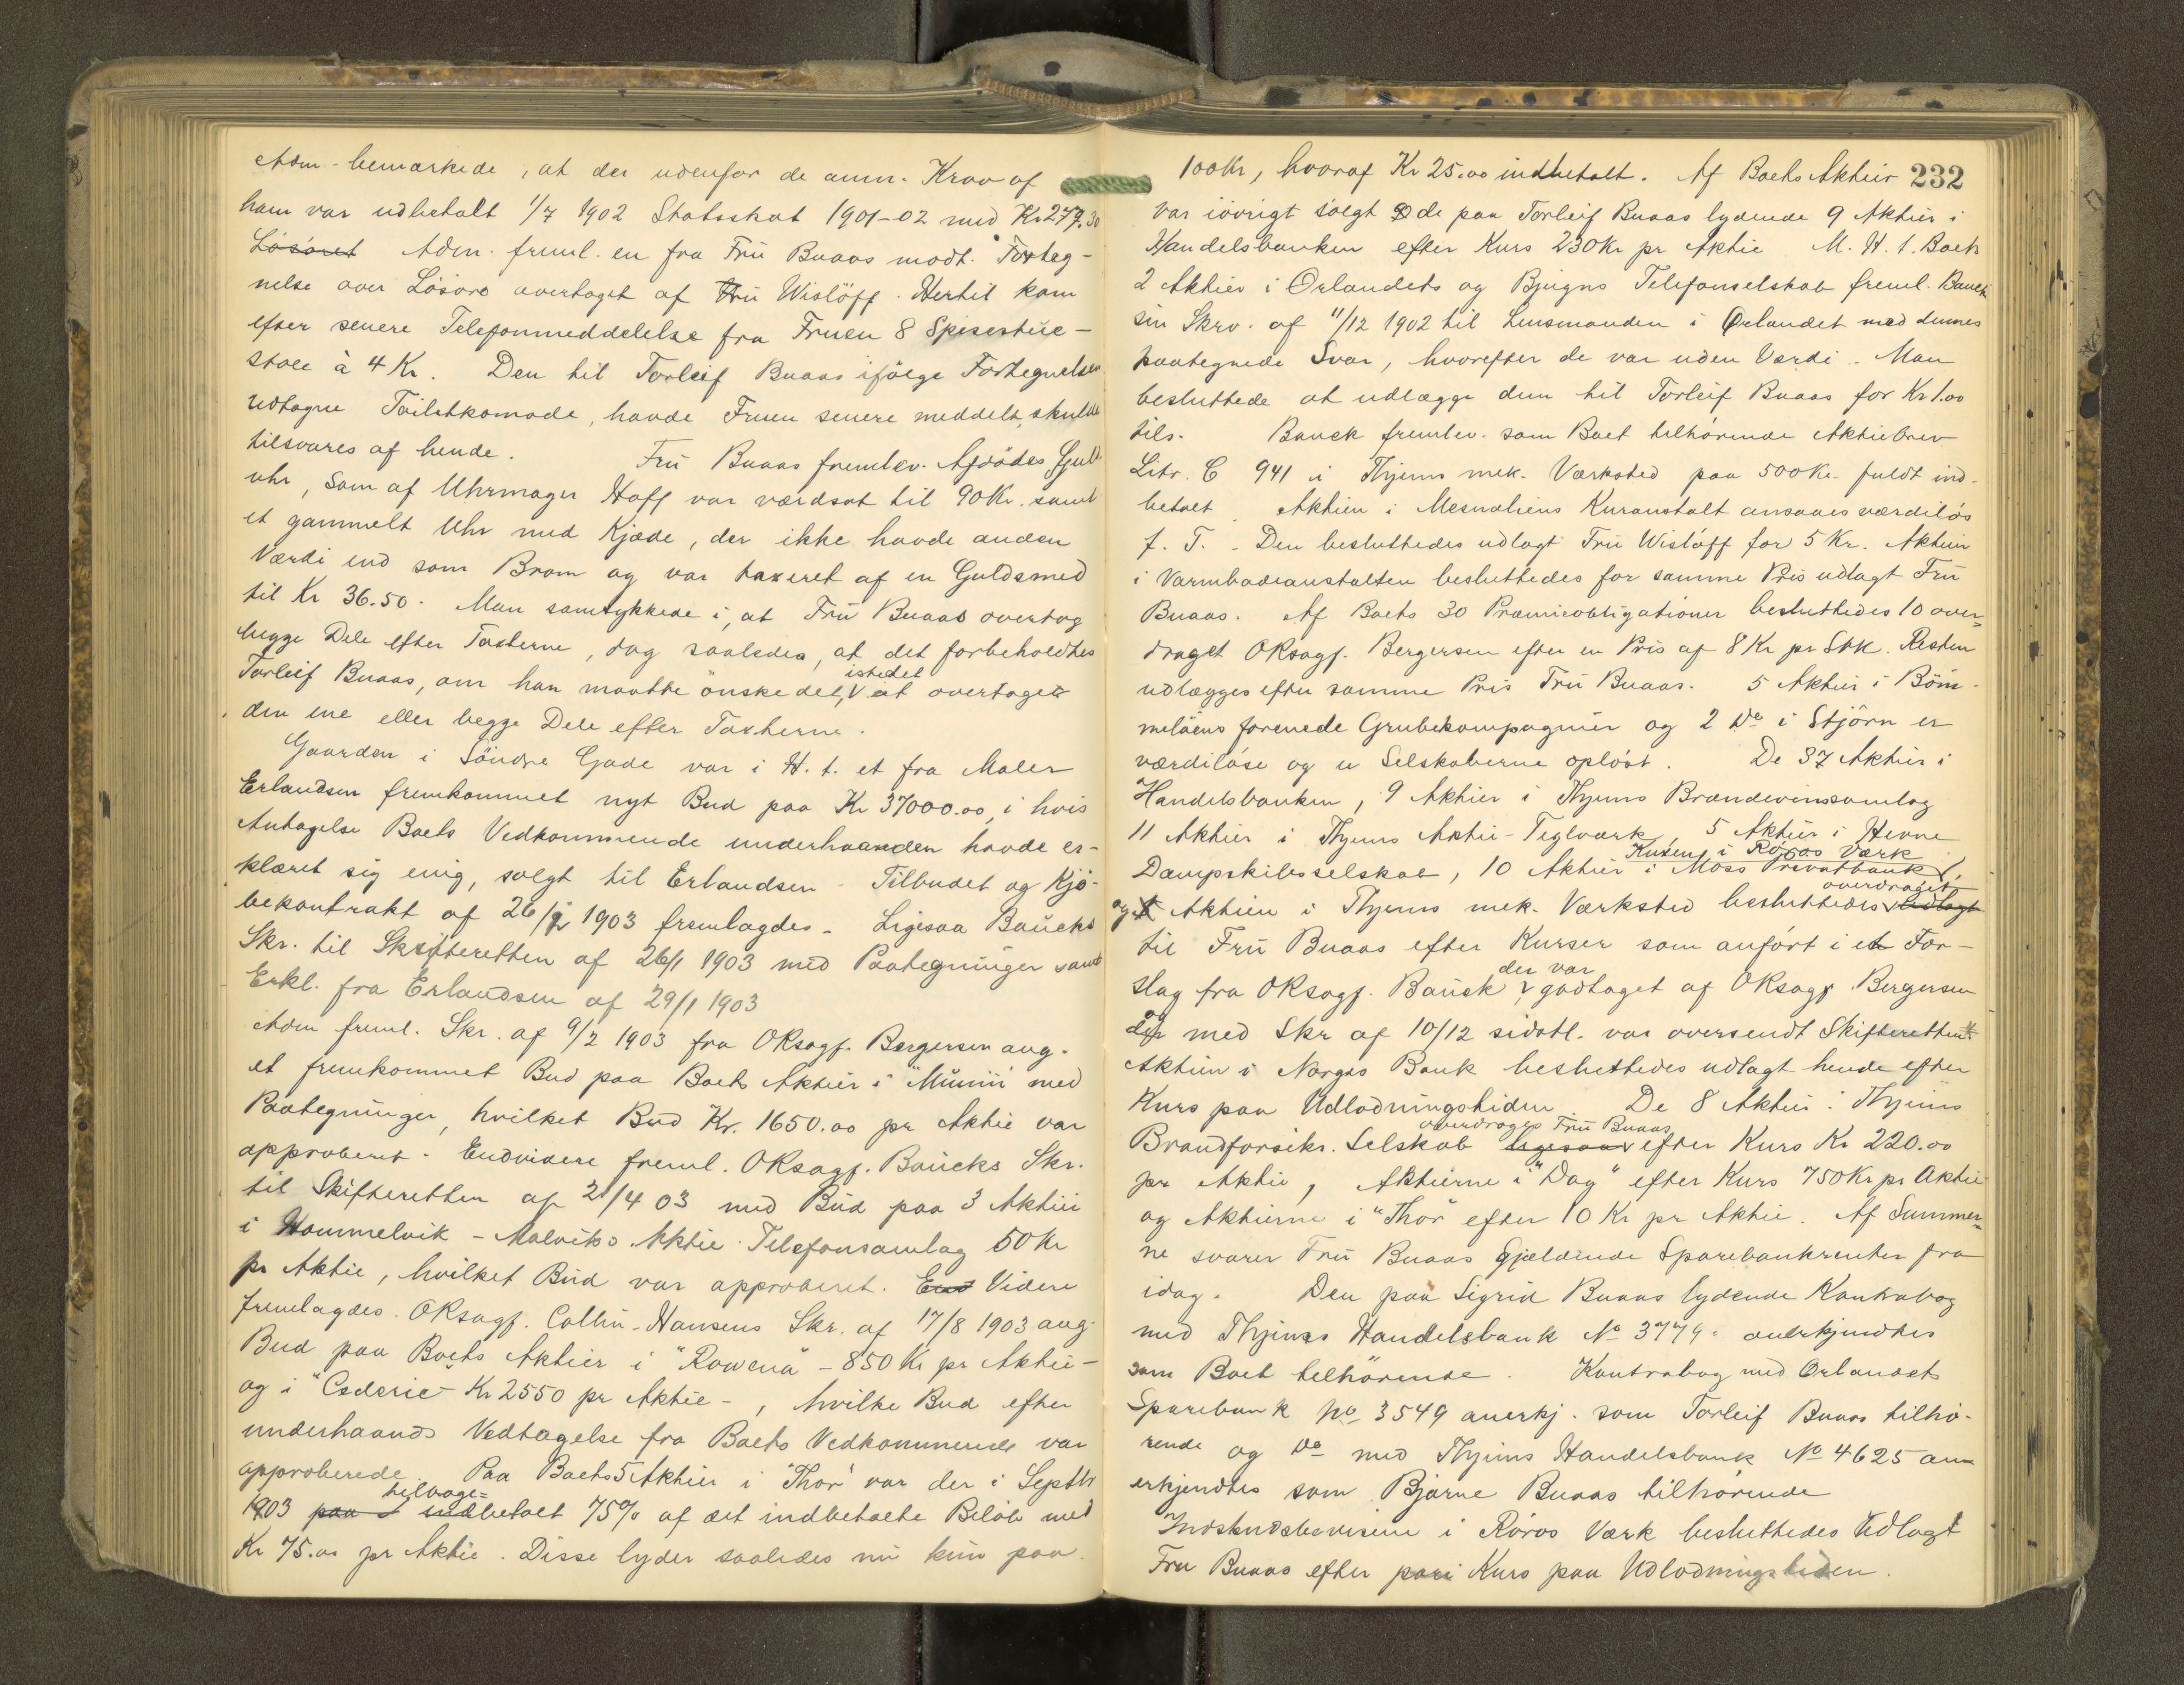 Adm. bemærkede, at der udenfor de anm. Krav af
ham var udbetalt 1/7 1902 Statsskat 1901-02 med Kr 277.30
Løsøret Adm. freml. en fra Fru Buaas modt. Forteg-
nelse over Løsøre overtaget af Fru Wisløff. Hertil kom
efter senere Telefonmeddelelse fra Fruen 8 Spisestue-
stole à 4 Kr. Den til Torleif Buaas ifølge Fortegnelsen
udtagne Toiletkomode, havde Fruen senere meddelt, skulde
tilsvares af hende. Fru Buaas fremlev. Afdødes Guld
uhr, som af Uhrmager Hoff var værdsat til 90 Kr. samt
et gammelt Uhr med Kjæde, der ikke havde anden
Værdi end som Brom og var taxeret af en Guldsmed
til Kr 36.50. Man samtykkede i, at Fru Buaas overtog
begge Dele efter Taxterne, dog saaledes, at det forbeholdtes
Torleif Buaas, om han maatte ønske det, istedet at overtage
den ene eller begge Dele efter Taxterne.
Gaarden i Søndre Gade var i H. t. et fra Maler
Erlandsen fremkommet nyt Bud paa Kr 37000.00, i hvis
Antagelse Boets Vedkommende underhaanden havde er-
klæret sig enig, solgt til Erlandsen. Tilbudet og Kjø-
bekontrakt af 26/2 1903 fremlagdes. Ligesaa Baucks
Skr. til Skifteretten af 26/1 1903 med Paategninger samt
Erkl. fra Erlandsen af 29/1 1903
Adm freml. Skr. af 9/2 1903 fra OKsagf. Bergersen ang.
et fremkommet Bud paa Boets Aktier i "Munin" med
Paategninger, hvilket Bud Kr. 1650.00 pr Aktie var
approberet. Endvidere freml. OKsagf. Baucks Skr.
til Skifteretten af 21/4 03 med Bud paa 3 Aktier
i Hommelvik - Malviks Aktie Telefonsamlag 50 Kr
pr Aktie, hvilket Bud var approberet. End Videre
fremlagdes OKsagf. Collin-Hansens Skr. af 17/8 1903 ang
Bud paa Boets Aktier i "Rowena" - 850 Kr pr Aktie -
og i "Cederic" Kr 2550 pr Aktie -, hvilke Bud efter
underhaands Vedtagelse fra Boets Vedkommende var
approberede. Paa Boets 5 Aktier i "Thor" var der i Septbr
1903 paa tilbage= indbetalt 75% af det indbetalte Beløb med
Kr 75.00 pr Aktie. Disse lyder saaledes nu kun paa
232
100 Kr, hvoraf Kr 25.00 indbetalt. Af Boets Aktier
var iøvrigt solgt de paa Torleif Buaas lydende 9 Aktier i
Handelsbanken efter Kurs 230 Kr pr Aktie M. H. t. Boets
2 Aktier i Ørlandets og Bjugns Telefonselskab freml. Bauck
sin Skrv. af 11/12 1902 til Lensmanden i Ørlandet med dennes
paategnede Svar, hvorefter de var uden Værdi. Man
besluttede at udlægge dem til Torleif Buaas for Kr 1.00
tils. Bauck fremlev. som Boet tilhørende Aktiebrev
Litr. C 941 i Thjems mek. Værksted paa 500 Kr. fuldt ind-
betalt. Aktien i Mesnaliens Kuranstalt ansaaes værdiløs
f. T. Den besluttedes udlagt Fru Wisløff for 5 Kr. Aktien
i Varmbadeanstalten besluttedes for samme Pris udlagt Fru
Buaas. Af Boets 30 Præmieobligationer besluttedes 10 over=
draget OKsagf. Bergersen efter en Pris af 8 Kr pr Stk. Resten
udlægges efter samme Pris Fru Buaas. 5 Aktier i Bøm-
meløens forenede Grubekompagnier og 2 Do i Stjørn er
værdiløse og er Selskaberne opløst. De 37 Aktier i
Handelsbanken, 9 Aktier i Thjems Brændevinssamlag
11 Aktier i Thjems Aktie-Teglværk, 5 Aktier i Hevne
Kuxen i Røros Værk
Dampskibsselskab, 10 Aktier i Moss Privatbank,
og Aktien i Thjems mek. Værksted besluttedes overdraget udlagt
til Fru Buaas efter Kurser som anført i et For-
slag fra OKsagf. Bauck, der var godtaget af OKsagf. Bergersen
og med Skr af 10/12 sidstl. var oversendt Skifteretten.
Aktien i Norges Bank besluttedes udlagt hende efter
Kurs paa Udlodningstiden. De 8 Aktier i Thjems
Brandforsikr. Selskab ligesaa overdrages Fru Buaas efter Kurs Kr 220.00
pr Aktie, Aktierne i "Dag" efter Kurs 750 Kr pr Aktie
og Aktierne i "Thor" efter 10 Kr pr Aktie. Af Summer=
ne svarer Fru Buaas gjældende Sparebankrenter fra
idag. Den paa Sigrid Buaas lydende Kontrabog
med Thjems Handelsbank No 3779 anerkjendtes
som Boet tilhørende. Kontrabog med Ørlandets
Sparebank No 3549 anerkj. som Torleif Buaas tilhø-
rende og Do med Thjems Handelsbank No 4625 an=
erkjendtes som Bjarne Buaas tilhørende
Indskudsbevisene i Røros Værk besluttedes Udlagt
Fru Buaas efter pari Kurs paa Udlodningstiden.